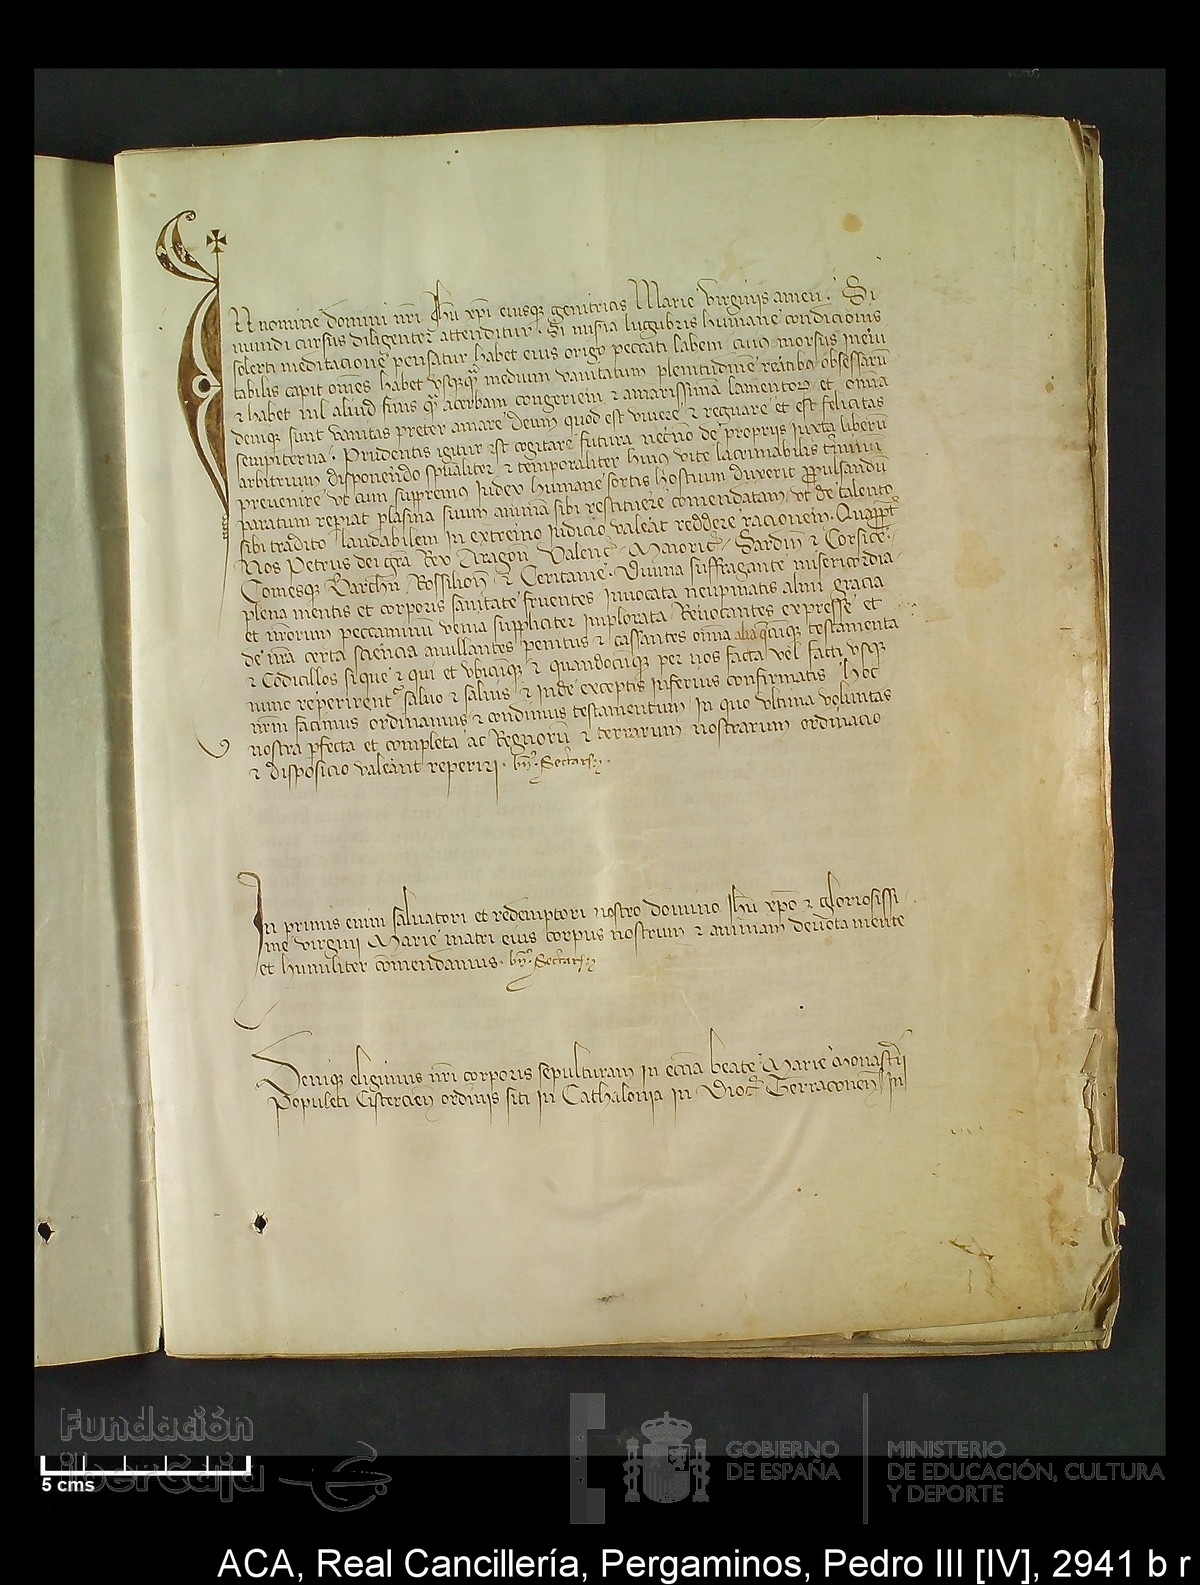 In nomine domini nr̄i Jhū xp̄i eiusq̄ genitricis Marie virginis amen. Si
mundi cursus diligenter attenditur. Si misera lugubris humane condicionis
solerti meditacione pensatur habet eius origo peccati labem cuius morsus inevi
tabilis capit om̄es habet usq̄q̄ medium vanitatum plenitudinē reatibꝰ obsessarū
⁊ habet nil aliud finis q̄ acerbam congeriem ⁊ amarissimā lamentoꝝ et om̄ia
deniq̄ sunt vanitas preter amare deum quod est vivere ⁊ regnare et est felicitas
sempiterna. Prudentis igitur est cogitare futura necnō de proprijs iuxta liberū
arbitrium disponendo sp̄ualiter ⁊ temporaliter huius vite lacrimabilis t̄minū
prevenire ut cum supremus Iudex humane sortis hostium duxerit propulsandū
paratum repiat plasma suum animā sibi restituere comendatam ut de talento
sibi tradito laudabilem in extremo Iudicio valeat reddere racionem. Quapropt̄
Nos Petrus dei grā Rex Aragon̄ Valenc̄ Maioric̄ Sardin̄ ⁊ Corsice.
Comesq̄ Barchn̄ Rossilion̄ ⁊ Ceritanie. Divina suffragante misericordia
plena mentis et corporis sanitate fruentes Invocata neupmatis almi gracia
et nr̄orum peccaminū venia suppliciter implorata Revocantes expresse et
de nr̄a certa sciencia anullantes penitus ⁊ cassantes om̄ia alia q̄cūq̄ testamenta
⁊ Codicillos si que ⁊ qui et ubicūq̄ ⁊ quandocūq̄ per nos facta vel facti usq̄
nunc reperirent̄ salvo ⁊ salvis ⁊ inde exceptis inferius confirmatis Hoc
nr̄m facimus ordinamus ⁊ condimus testamentum In quo ultima voluntas
nostra p̄fecta et completa ac Regnorū ⁊ terrarum nostrarum ordinacio
⁊ disposicio valeant reperiri.
In primis enim salvatori et redemptori nostro domino Jhū xp̄o ⁊ gloriosissi
me virgini Marie matri eius corpus nostrum ⁊ animam devota mente
et humiliter comendamus.
Deniq̄ eligimus nr̄i corporis sepulturam in ecc̄ia beate Marie Monast̄ii
Populeti Cistercien̄ ordinis siti in Cathalonia in Dioc̄ Terraconen̄ in
Fundación
iberCaja
5 cms
GOBIERNO
DE ESPAÑA
MINISTERIO
DE EDUCACIÓN, CULTURA
Y DEPORTE
ACA, Real Cancillería, Pergaminos, Pedro III [IV], 2941 b r